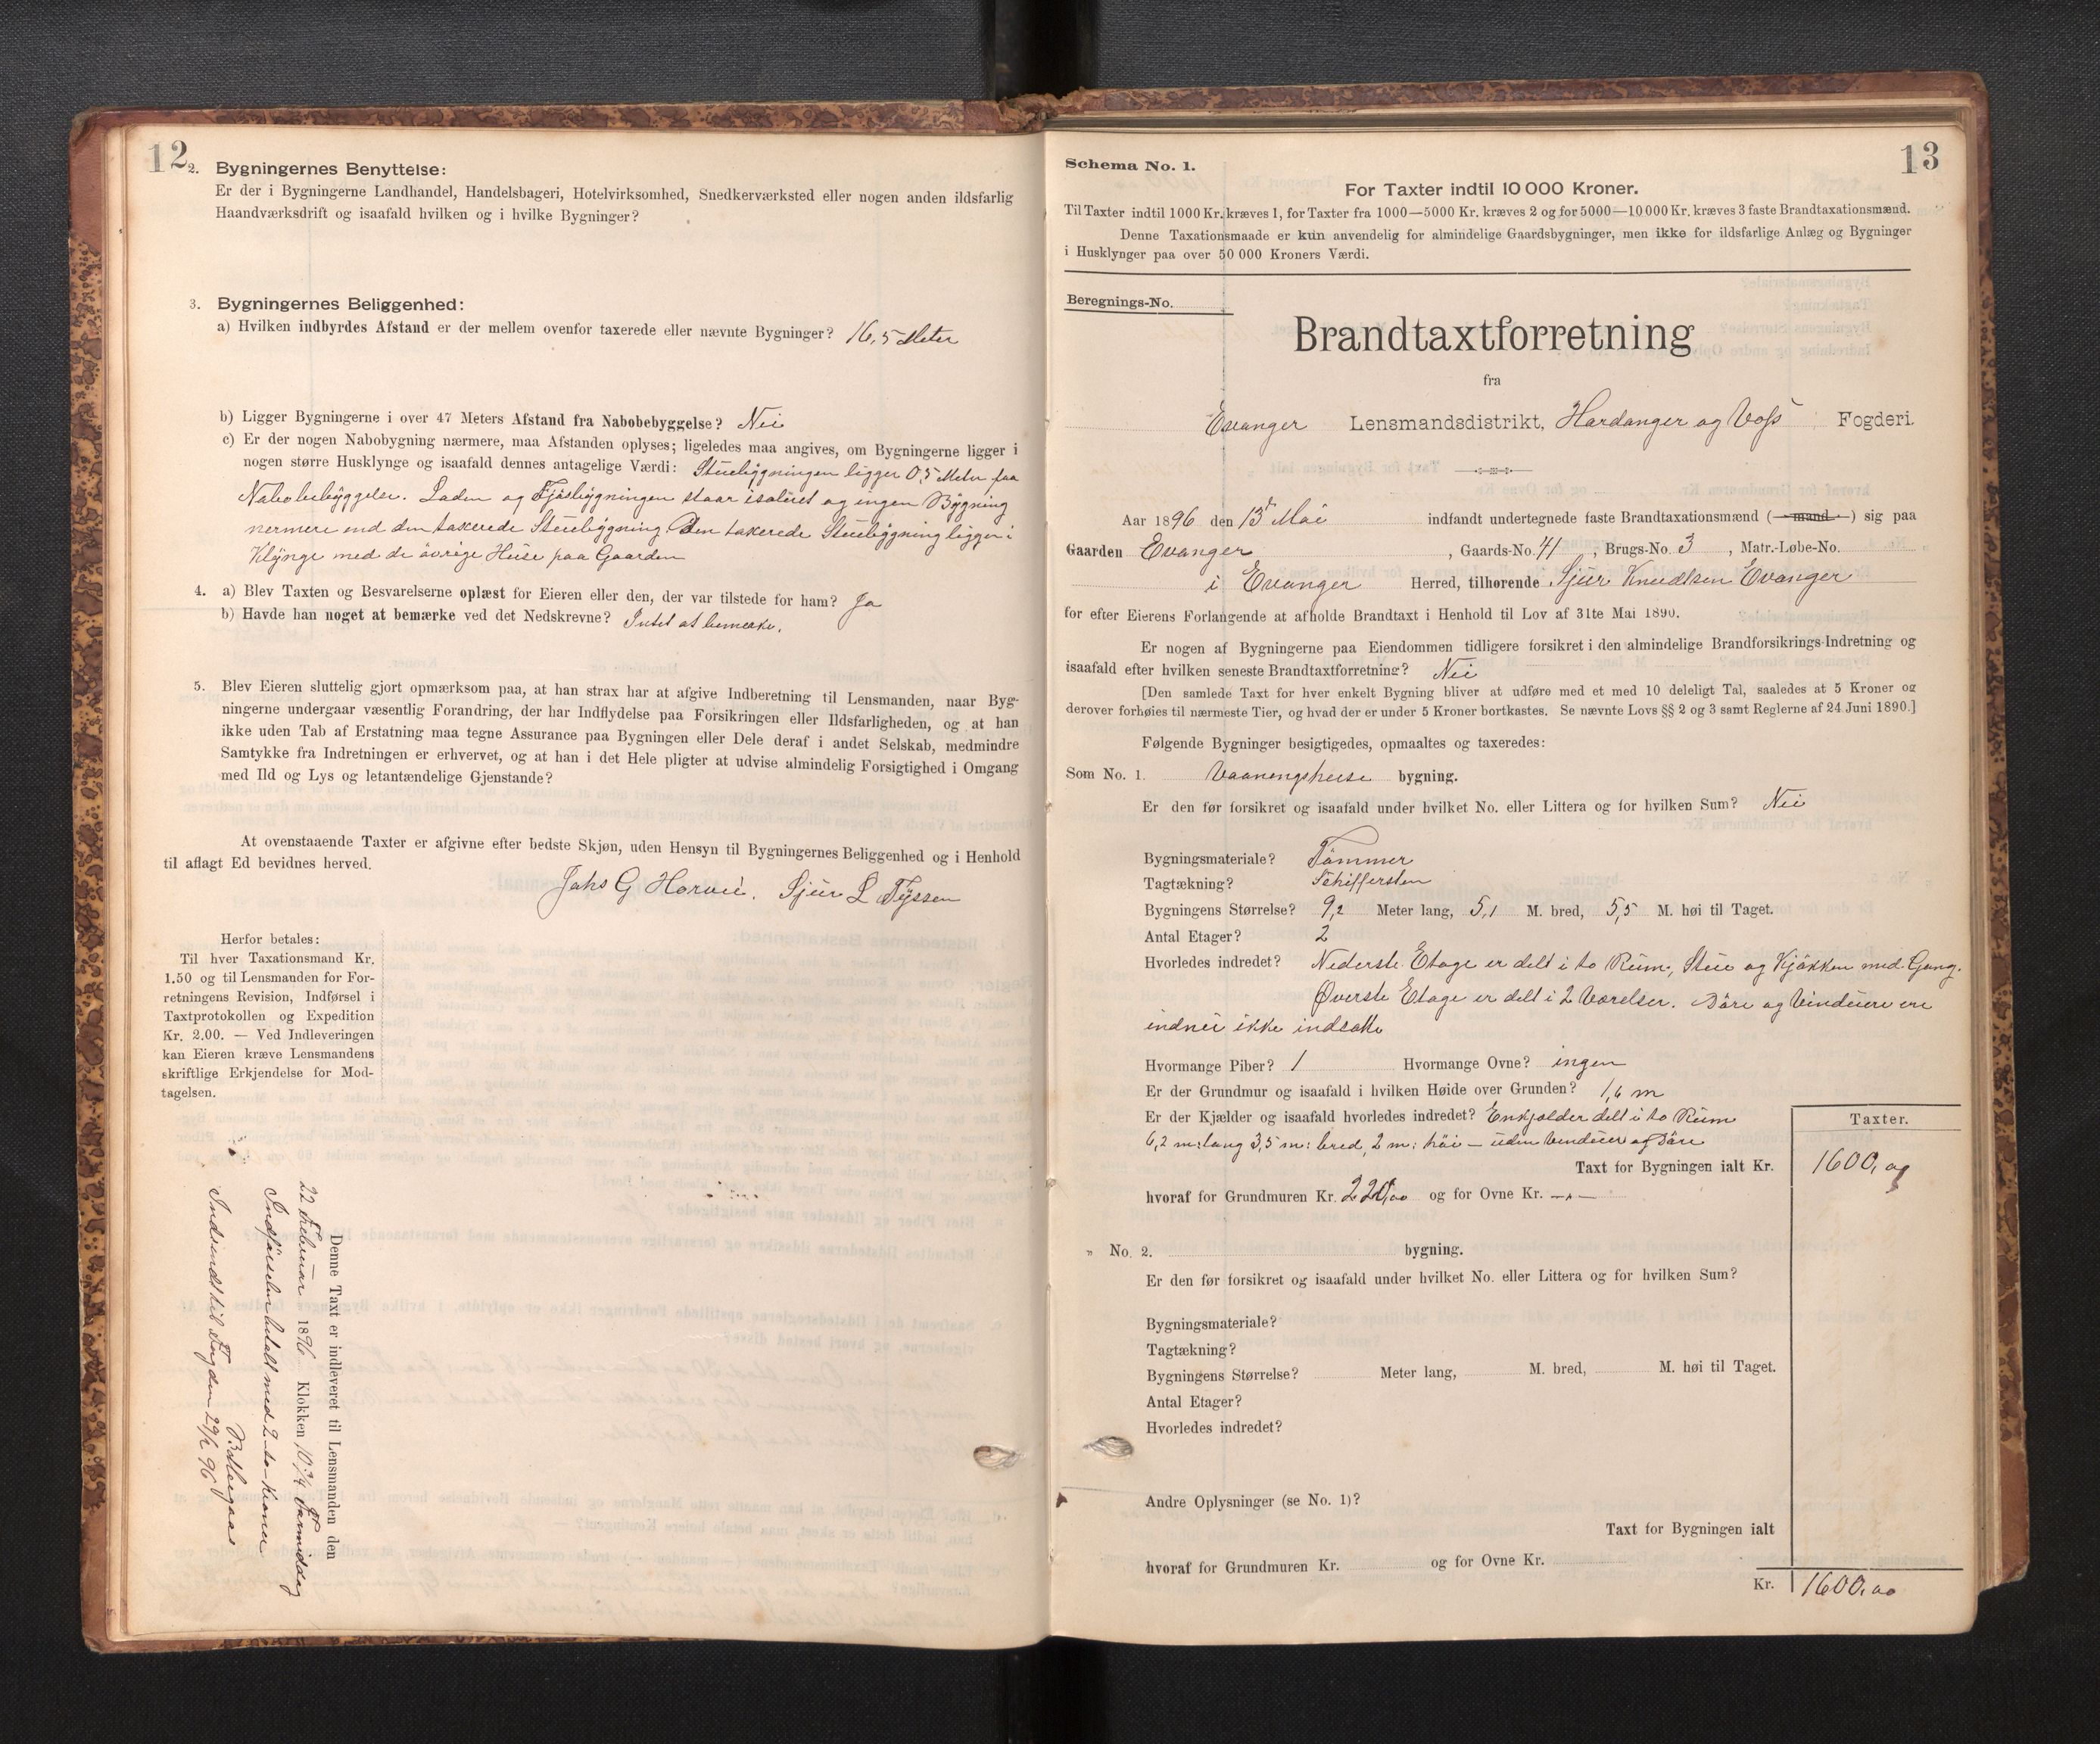 12
2. Bygningernes Benyttelse:
Er der i Bygningerne Landhandel, Handelsbageri, Hotelvirksomhed, Snedkerværksted eller nogen anden ildsfarlig
Haandværksdrift og isaafald hvilken og i hvilke Bygninger?
3. Bygningernes Beliggenhed:
a) Hvilken indbyrdes Afstand er der mellem ovenfor taxerede eller nævnte Bygninger? 16,5 Meter
b) Ligger Bygningerne i over 47 Meters Afstand fra Nabobebyggelse? Nei
c) Er der nogen Nabobygning nærmere, maa Afstanden oplyses; ligeledes maa angives, om Bygningerne ligger i
nogen større Husklynge og isaafald dennes antagelige Værdi: Stuebygningen ligger 0,5 Meter fra
Nabobebyggelse. Laden og Fjøsbygningen staar isoleret og ingen Bygning
nermere end den taxerede Stuebygning. Den taxerede Stuebygning ligger i
Klynge med de øvrige Huse paa Gaarden
4. a) Blev Taxten og Besvarelserne oplæst for Eieren eller den, der var tilstede for ham? Ja
b) Havde han noget at bemærke ved det Nedskrevne? Intet at bemerke.
5. Blev Eieren sluttelig gjort opmærksom paa, at han strax har at afgive Indberetning til Lensmanden, naar Byg-
ningerne undergaar væsentlig Forandring, der har Indflydelse paa Forsikringen eller Ildsfarligheden, og at han
ikke uden Tab af Erstatning maa tegne Assurance paa Bygningen eller Dele deraf i andet Selskab, medmindre
Samtykke fra Indretningen er erhvervet, og at han i det Hele pligter at udvise almindelig Forsigtighed i Omgang
med Ild og Lys og letantændelige Gjenstande?
At ovenstaaende Taxter er afgivne efter bedste Skjøn, uden Hensyn til Bygningernes Beliggenhed og i Henhold
til aflagt Ed bevidnes herved.
Johs G Horvei. Sjur L Tyssen
Herfor betales:
Til hver Taxationsmand Kr.
1.50 og til Lensmanden for For-
retningens Revision, Indførsel i
Taxtprotokollen og Expedition
Kr. 2.00. — Ved Indleveringen
kan Eieren kræve Lensmandens
skriftlige Erkjendelse for Mod-
tagelsen.
Denne Taxt er indleveret til Lensmanden den
22 Februar 1896 Klokken 10 3/4 Formiddag
Indførselen betalt med 2 to Kroner
Indsendt til Fogden 29/2 96
13
Schema No. 1.
For Taxter indtil 10 000 Kroner.
Til Taxter indtil 1000 Kr. kræves 1, for Taxter fra 1000—5000 Kr. kræves 2 og for 5000—10 000 Kr. kræves 3 faste Brandtaxationsmænd.
Denne Taxationsmaade er kun anvendelig for almindelige Gaardsbygninger, men ikke for ildsfarlige Anlæg og Bygninger
i Husklynger paa over 50 000 Kroners Værdi.
Beregnings-No.
Brandtaxtforretning
fra
Evanger Lensmandsdistrikt, Hardanger og Voss Fogderi.
Aar 1896 den 13d Mai indfandt undertegnede faste Brandtaxationsmænd (—mand—) sig paa
Gaarden Evanger, Gaards-No. 41, Brugs-No. 3, Matr.-Løbe-No.
i Evanger Herred, tilhørende Sjur Knudtsen Evanger
for efter Eierens Forlangende at afholde Brandtaxt i Henhold til Lov af 31te Mai 1890.
Er nogen af Bygningerne paa Eiendommen tidligere forsikret i den almindelige Brandforsikrings-Indretning og
isaafald efter hvilken seneste Brandtaxtforretning? Nei
[Den samlede Taxt for hver enkelt Bygning bliver at udføre med et med 10 deleligt Tal, saaledes at 5 Kroner og
derover forhøies til nærmeste Tier, og hvad der er under 5 Kroner bortkastes. Se nævnte Lovs §§ 2 og 3 samt Reglerne af 24 Juni 1890.]
Følgende Bygninger besigtigedes, opmaaltes og taxeredes:
Som No. 1. Vaaningshuse bygning.
Er den før forsikret og isaafald under hvilket No. eller Littera og for hvilken Sum? Nei
Bygningsmateriale? Tømmer
Tagtækning? Schiffersten
Bygningens Størrelse? 9,2 Meter lang, 5,1 M. bred, 5,5 M. høi til Taget.
Antal Etager? 2
Hvorledes indredet? Nederste Etage er delt i to Rum, Stue og Kjøkken med Gang.
Øverste Etage er delt i 2 Værelser. Døre og Vinduere ere
indnu ikke indsatte
Hvormange Piber? 1 Hvormange Ovne? ingen
Er der Grundmur og isaafald i hvilken Høide over Grunden? 1,6 m
Er der Kjælder og isaafald hvorledes indredet? En kjælder delt i to Rum
6,2 m: lang 3,5 m: bred, 2 m: høi — uden Vinduer og Døre
Taxter.
Taxt for Bygningen ialt Kr. 1600,00
hvoraf for Grundmuren Kr. 220,00 og for Ovne Kr. —„—
" No. 2. bygning.
Er den før forsikret og isaafald under hvilket No. eller Littera og for hvilken Sum?
Bygningsmateriale?
Tagtækning?
Bygningens Størrelse? Meter lang, M. bred, M. høi til Taget.
Antal Etager?
Hvorledes indredet?
Andre Oplysninger (se No. 1)?
Taxt for Bygningen ialt
hvoraf for Grundmuren Kr. og for Ovne Kr.
Kr. 1600,00